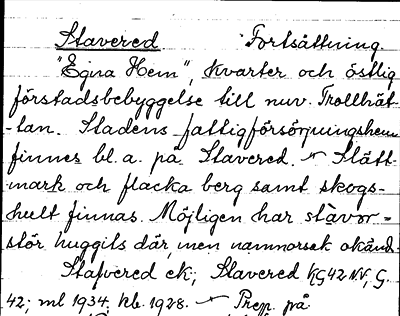 Stavered Fortsättning.
"Egna Hem", kvarter och östlig
förstadsbebyggelse till nuv. Trollhät-
-tan. Stadens fattigförsörjningshem
finnes bl. a. på Stavered. ~ Slätt-
mark och flacka berg samt skogs-
hult finnas. Möjligen har stavor =
stör huggits där, men namnorsak okänd.
Stafvered ek; Stavered KG42NV, G.
42; ml 1934; kb. 1928. ~ Prep. på